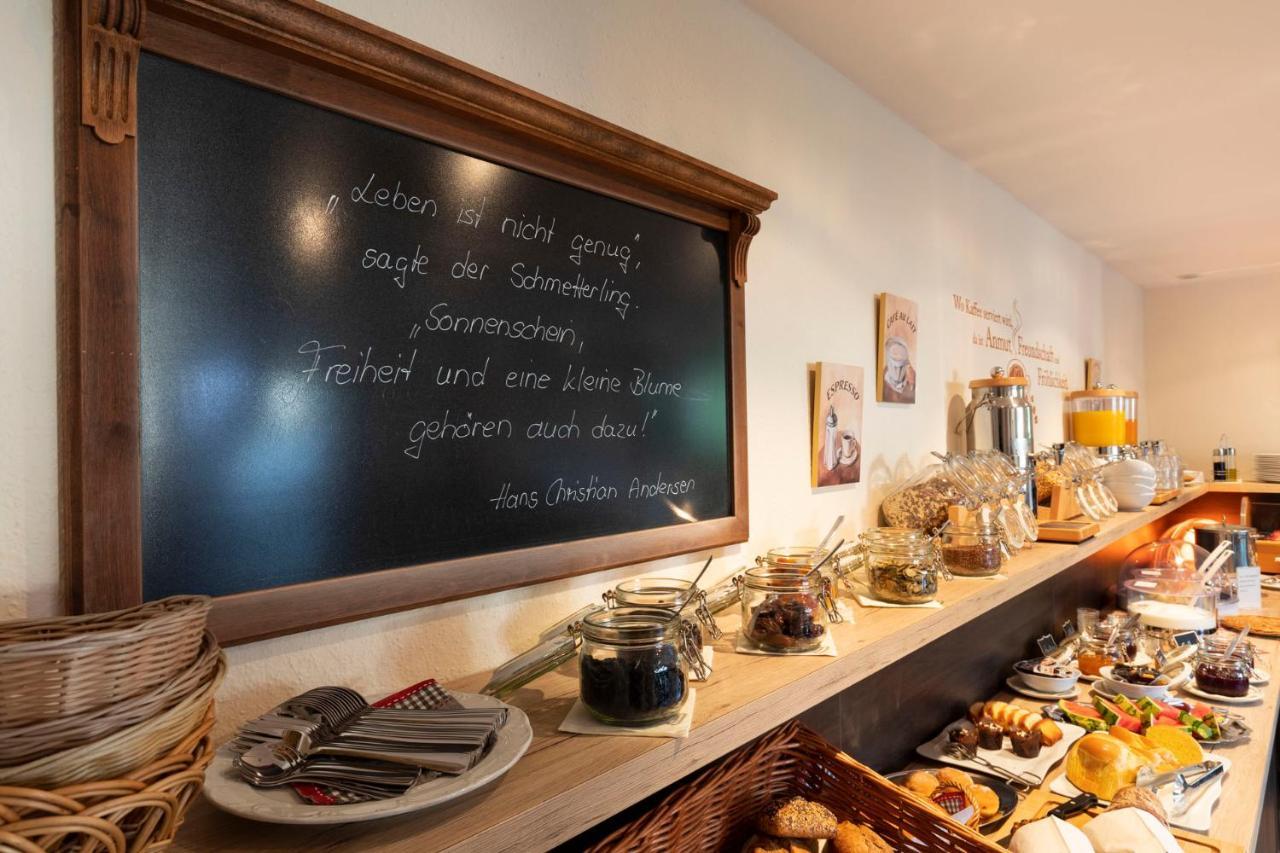 „Leben ist nicht genug“,
sagte der Schmetterling.
„Sonnenschein,
Freiheit und eine kleine Blume
gehören auch dazu!“
Hans Christian Andersen
CAFÉ AU LAIT
ESPRESSO
Wo Kaffee serviert wird,
da ist Anmut, Freundschaft und
Fröhlichkeit.